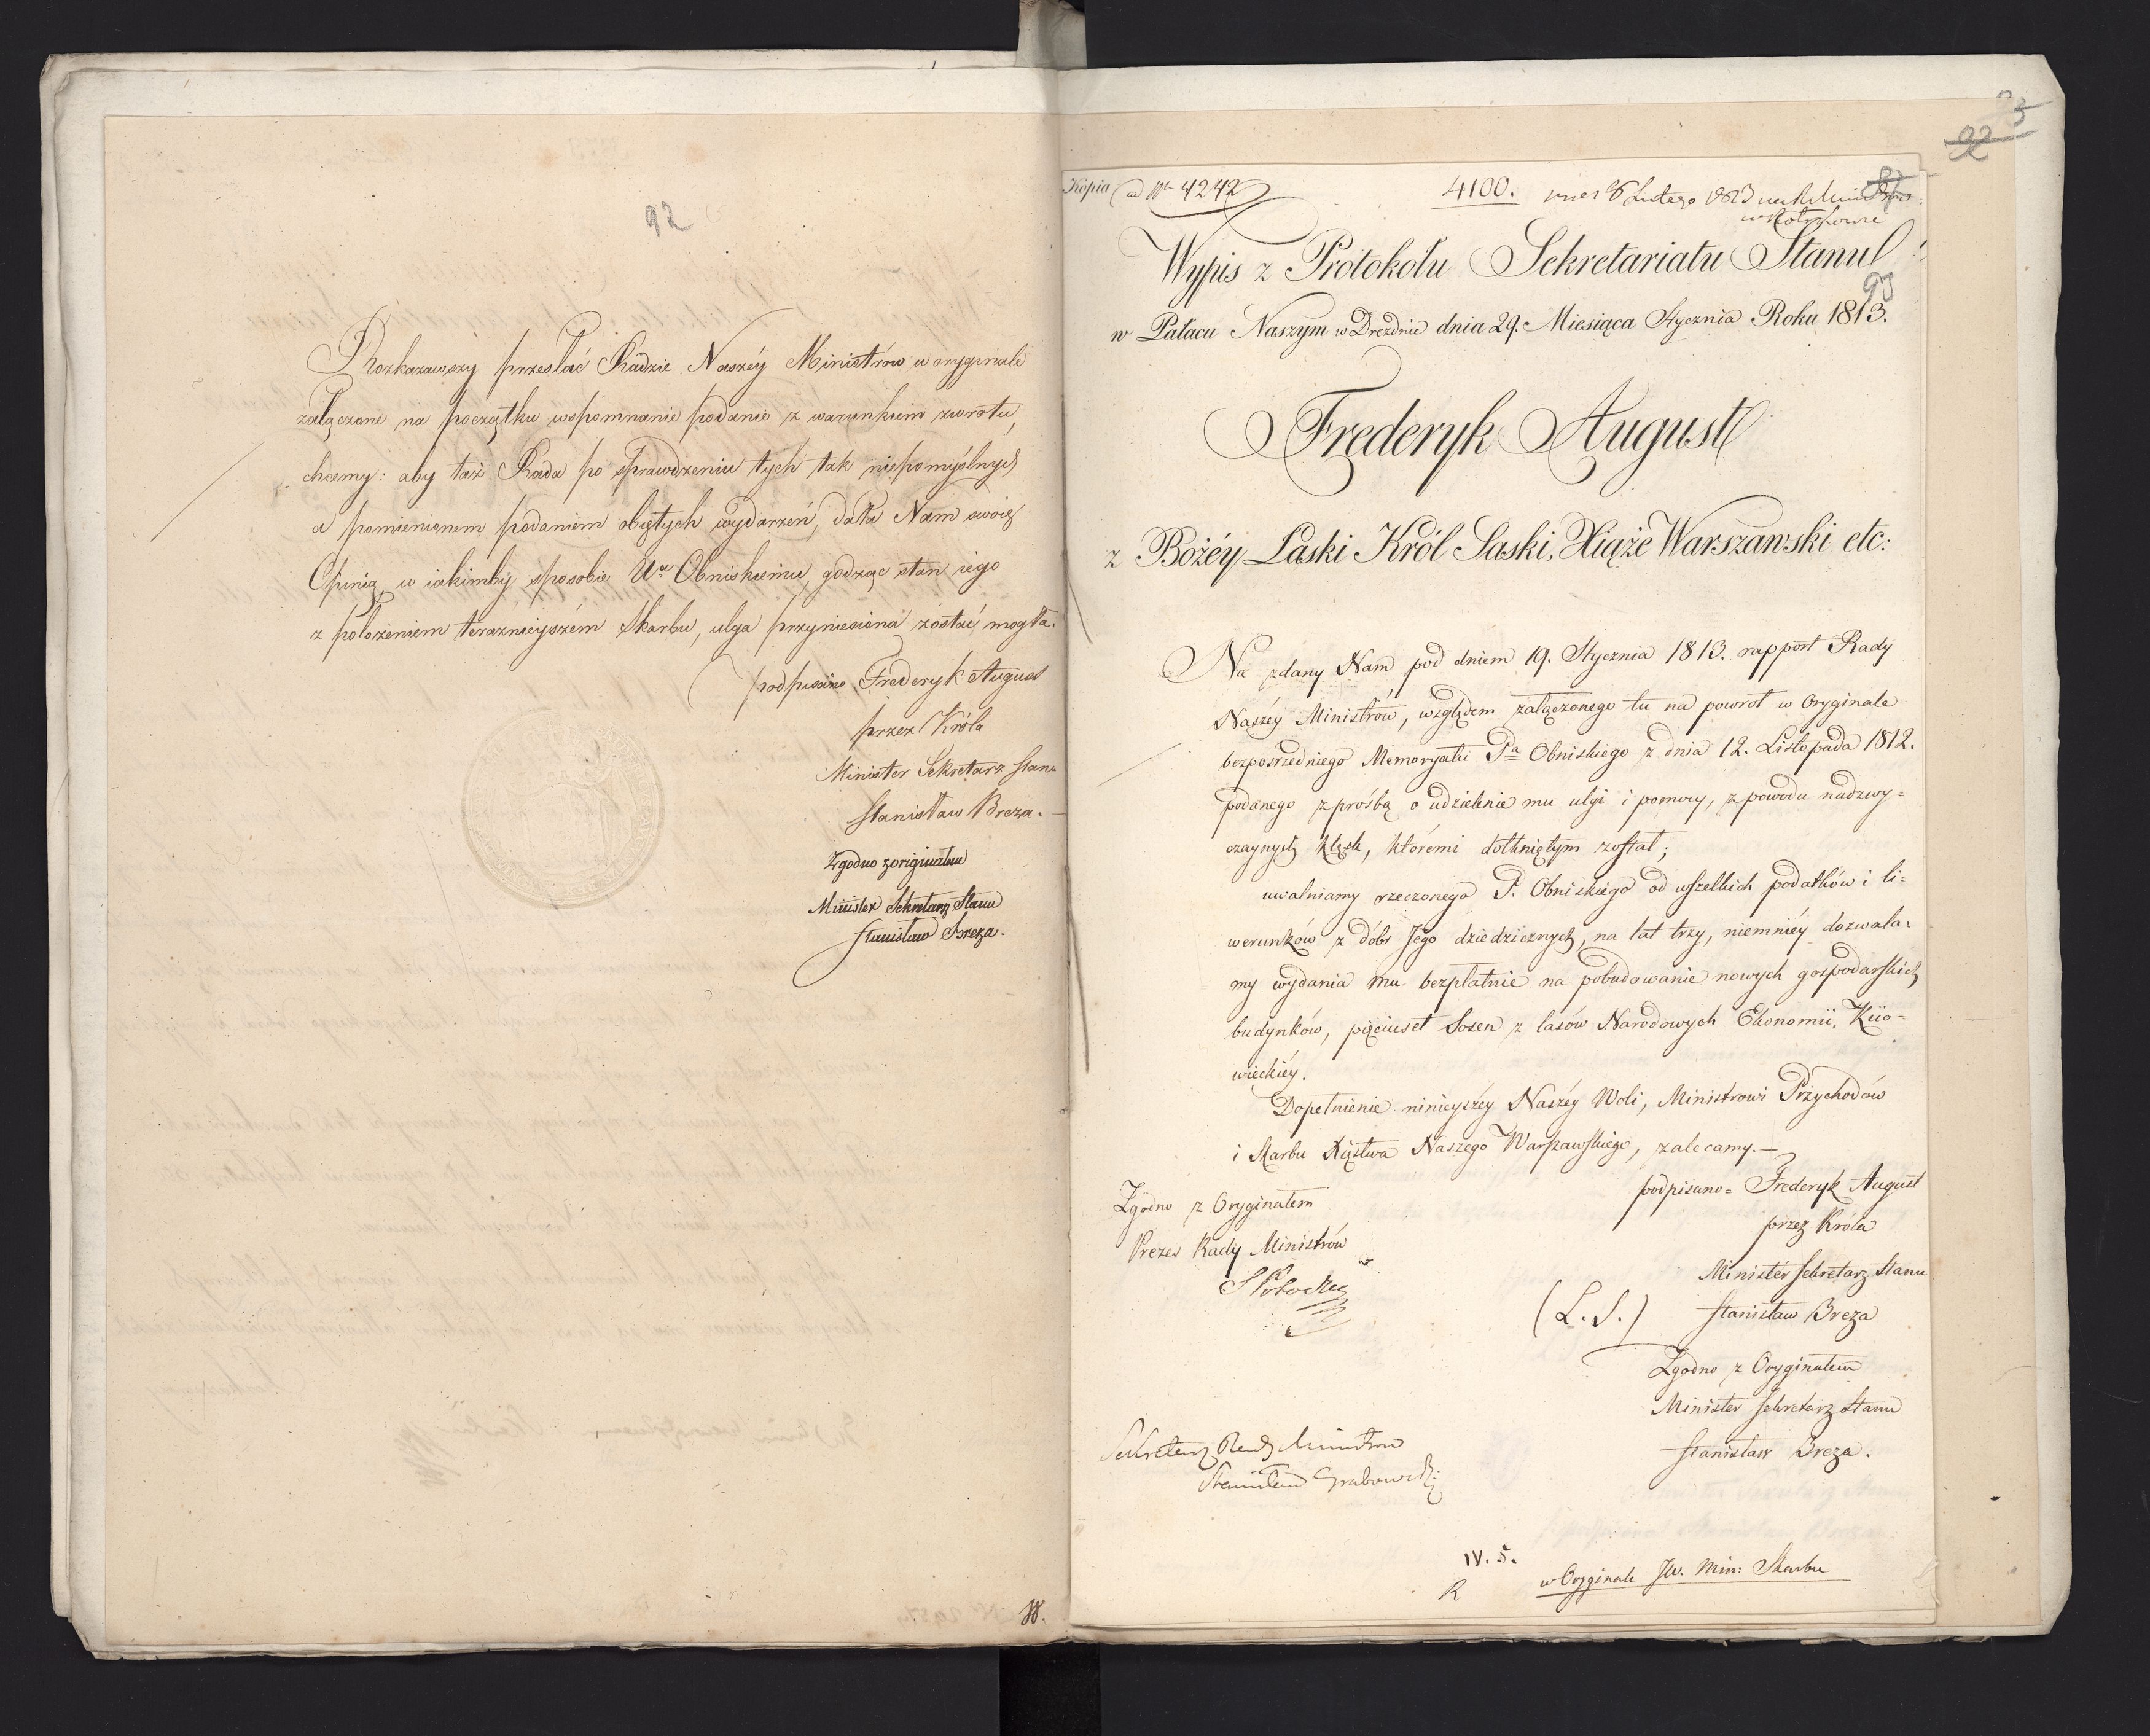 92
Rozkazawszy przesłać Radzie Naszéy Ministrów w oryginale
załączone na początku wspomnianie podanie z warunkiem zwrotu,
chcemy: aby taż Rada po sprawdzeniu tych tak niepomyślnych
a pomienionem podaniem obiętych wydarzeń, dała Nam swoię
Opinią w iakimby sposobie Ur Obniskiemu, godząc stan iego
z położeniem teraznieyszém Skarbu, ulga przyniesiona zostać mogła.
podpisano Frederyk August
przez Króla
Minister Sekretarz Stanu
Stanisław Breza.
Zgodno z originałem
Minister Sekretarz Stanu
Stanisław Breza.
93
92
Kopia ad Nr 4242
4100. 6 Lutego 1813
Wypis z Protokołu Sekretariatu Stanu
93
w Pałacu Naszym w Dreźnie dnia 29. Miesiąca Stycznia Roku 1813.
Frederyk August
z Bożéy Łaski Król Saski, Xiąże Warszawski etc:
Na zdany Nam pod dniem 19. Stycznia 1813. rapport Rady
Naszéy Ministrów, względem załączonego tu na powrot w Oryginale
bezpośrzedniego Memoryału Pa Obniskiego z dnia 12. Listopada 1812.
podanego z prośbą o udzielenie mu ulgi i pomocy, z powodu nadzwy=
czaynych klęsk, któremi dotkniętym został;
uwalniamy rzeczonego P. Obniskiego od wszelkich podatków i li=
werunków z dóbr Jego dziedzicznych, na lat trzy, niemniéy dozwala=
my wydania mu bezpłatnie na pobudowanie nowych gospodarskich
budynków, pięciuset Sosen z lasów Narodowych Ekonomii, Kiio=
wieckiéy.
Dopełnienie ninieyszéy Naszéy Woli, Ministrowi Przychodów
i Skarbu Xięstwa Naszego Warszawskiego, zalecamy.—
podpisano= Frederyk August
przez Króla
Minister Sekretarz Stanu
(L.S.) Stanisław Breza
Zgodno z Oryginałem
Minister Sekretarz Stanu
Stanisław Breza.
Zgodno z Oryginałem
Prezes Rady Ministrów
S Potocki
Sekretarz Rady Ministrów
Stanisław Grabowski
IV. 5.
R
w Oryginale JW. Min: Skarbu